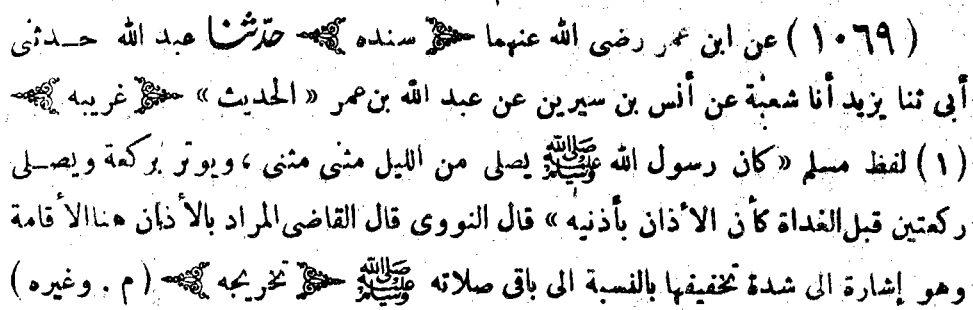 ( ١٠٦٩ ) عن ابن عمر رضى الله عنهما ﴿ سنده ﴾ حدّثنا عبد الله حـدثنى
أبى ثنا يزيد أنا شعبة عن أنس بن سيرين عن عبد الله بن عمر « الحديث » ﴿ غريبه ﴾
(١) لفظ مسلم « كان رسول الله ﷺ يصلى من الليل مثنى مثنى ، ويوتر بركعة ويصـلى
ركعتين قبل الغداة كأن الأذان بأذنيه » قال النووى قال القاضى المراد بالأذان هنا الأقامة
وهو إشارة الى شدة تخفيفها بالنسبة الى باقى صلاته ﷺ ﴿ تخريجه ﴾ ( م . وغيره )